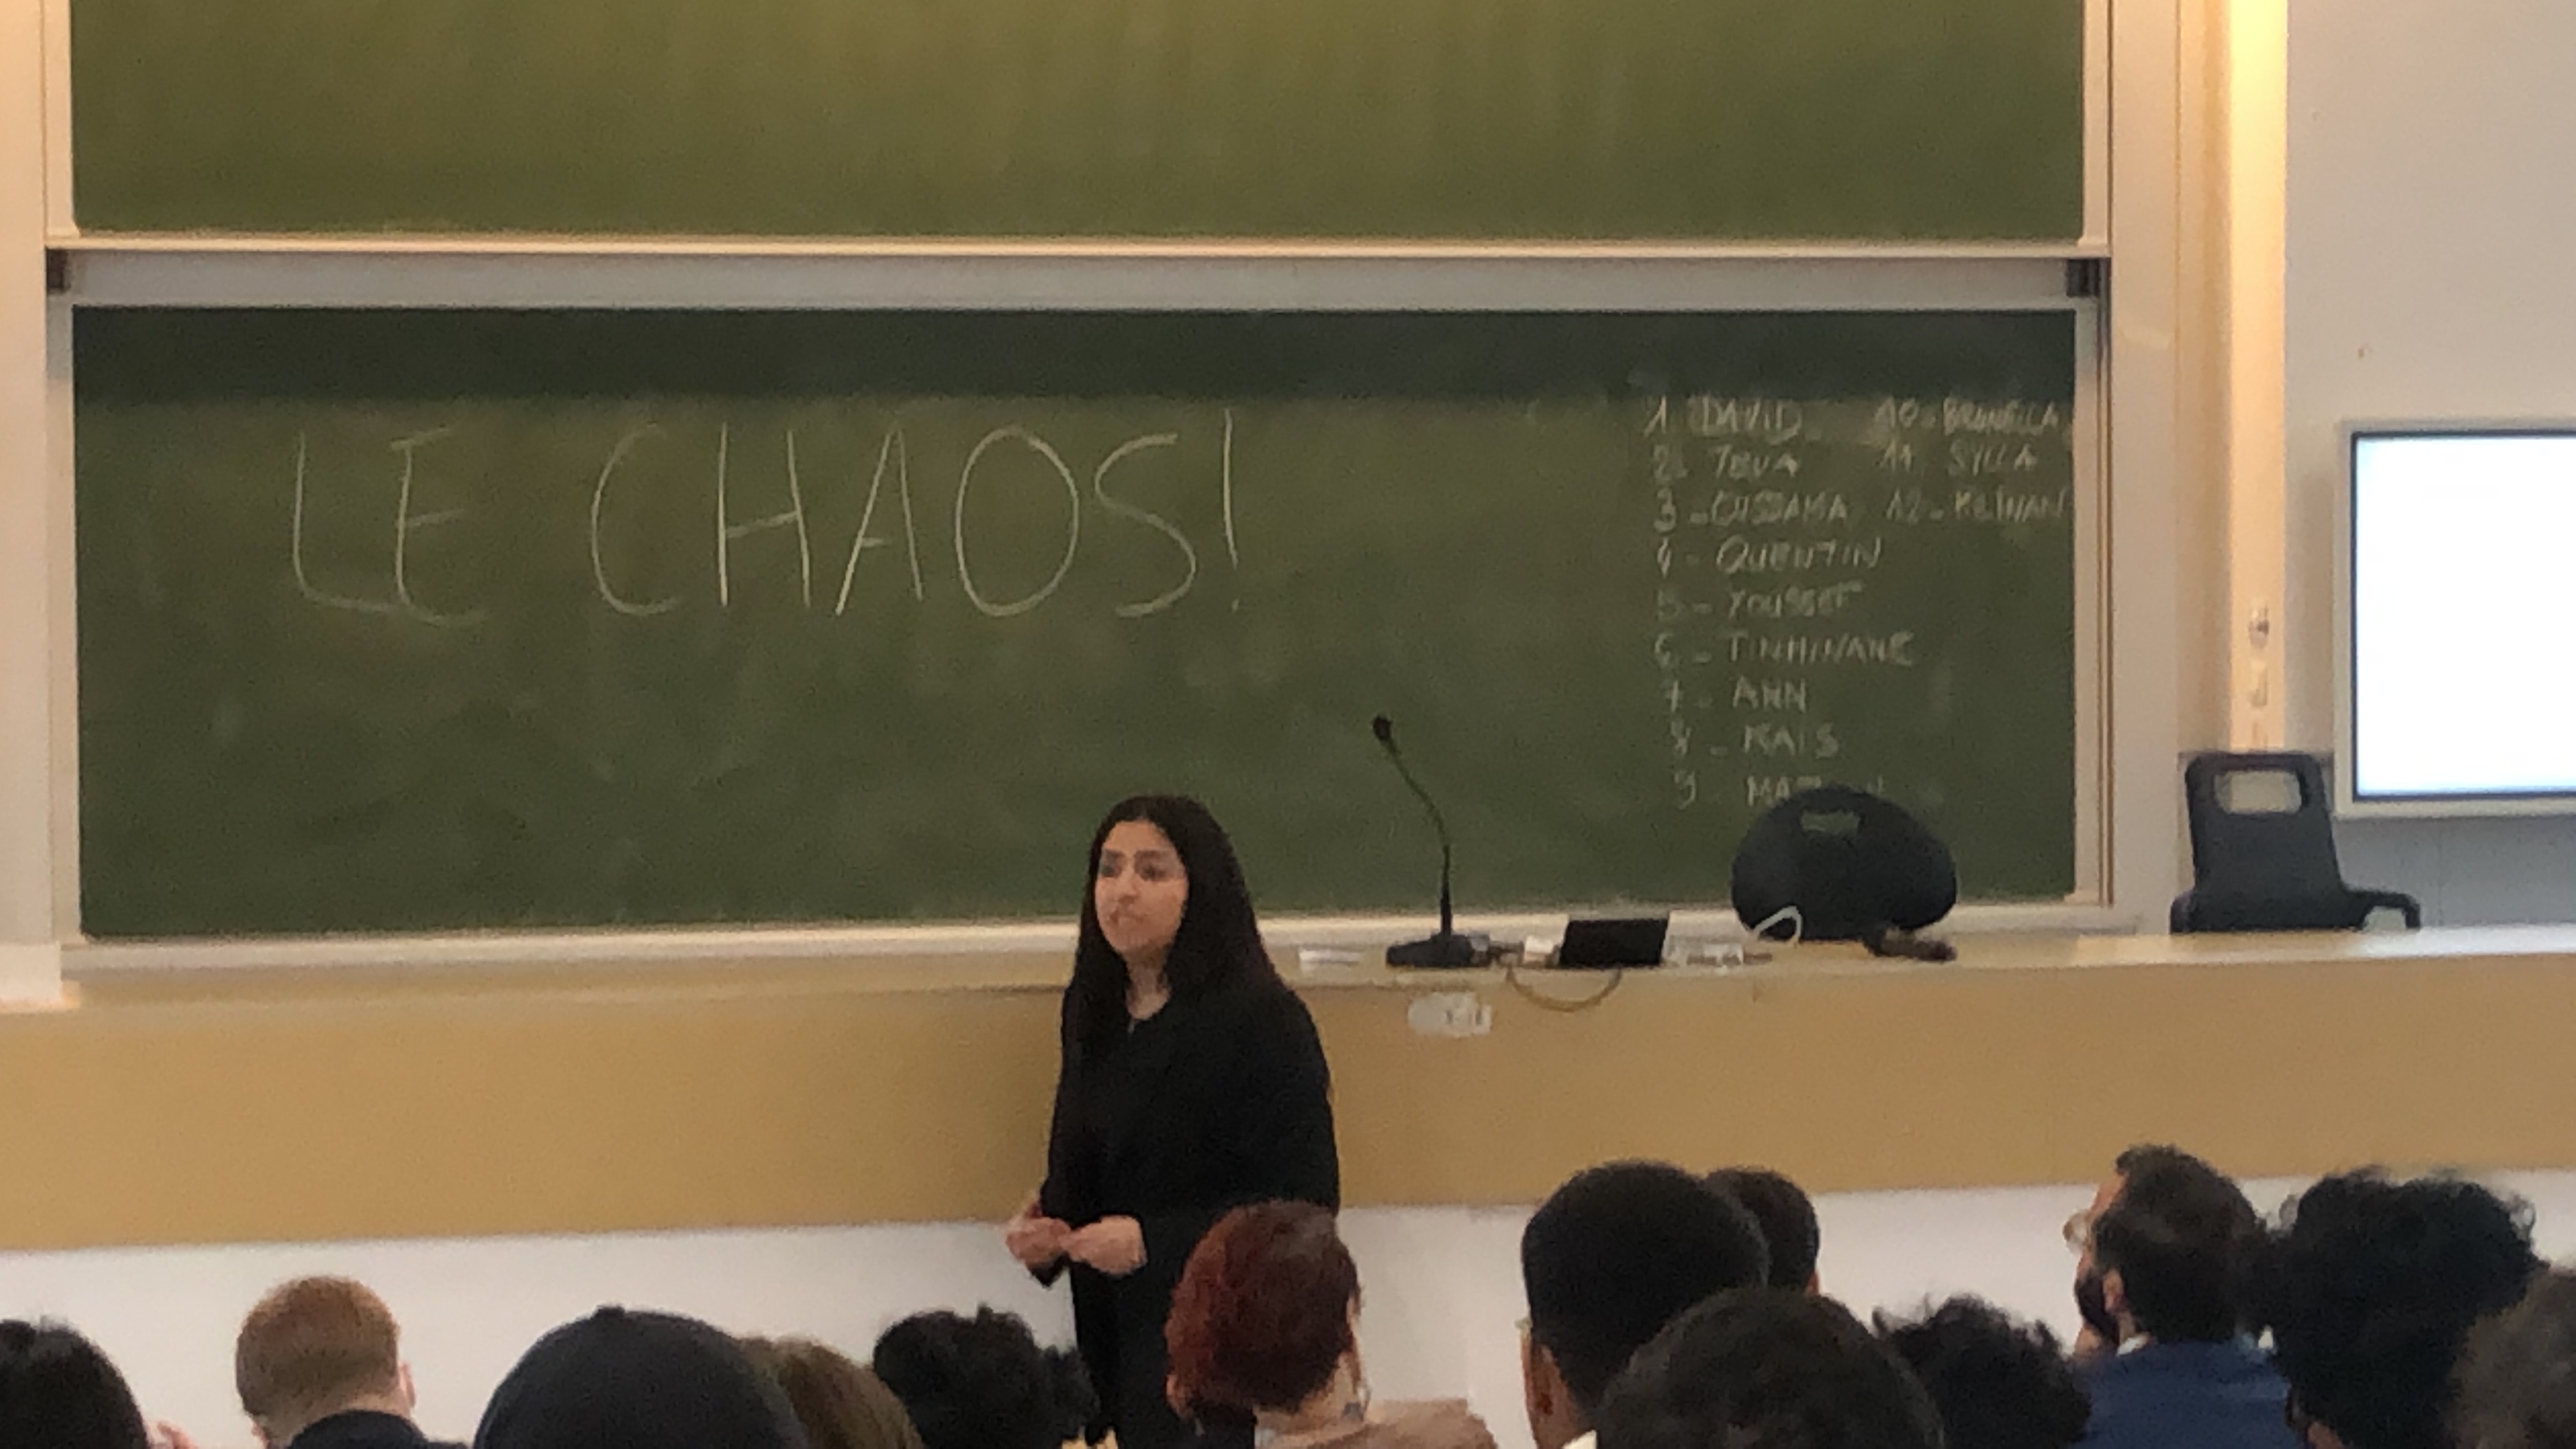 LE CHAOS!
1 DAVID
2. TEVA
3 - OUSSAMA
4 - QUENTIN
5 - YOUSSEF
6 - TINHINANE
7 - ANN
8 - KAIS
9
10 - BRUNELLA
11. SYLLA
12 -